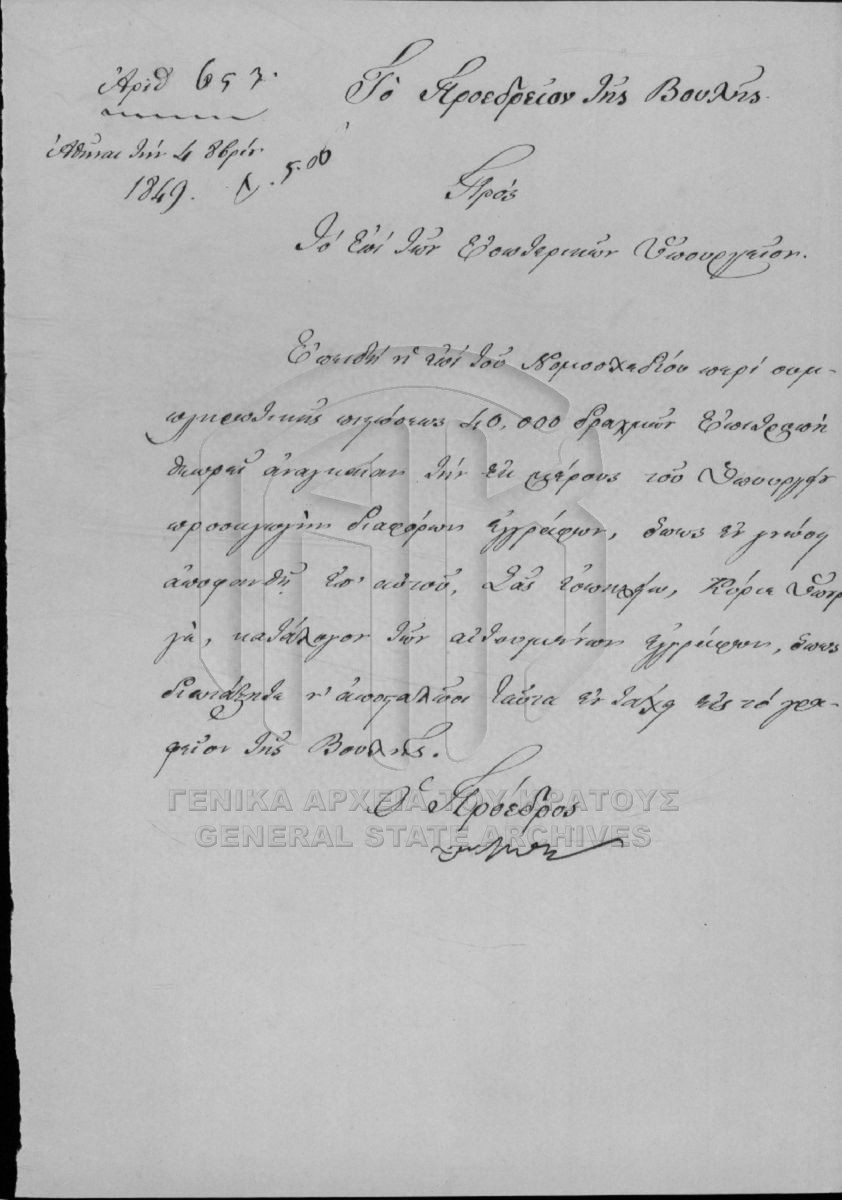 Ἀριθ 657.
Τὸ Προεδρεῖον τῆς Βουλῆς.
Ἀθῆναι τὴν 4 8βρίου
1849.
Πρὸς
τὸ ἐπὶ τῶν Ἐσωτερικῶν Ὑπουργεῖον.
Ἐπειδὴ ἡ ἐπὶ τοῦ Νομοσχεδίου περὶ συμ-
πληρωτικῆς πιστώσεως 40,000 δραχμῶν Ἐπιτροπὴ
θεωρεῖ ἀναγκαίαν τὴν ἐκ μέρους τοῦ Ὑπουργείου
προσαγωγὴν διαφόρων ἐγγράφων, ὅπως ἐν γνώσει
ἀποφανθῇ ἐπ' αὐτοῦ, Σᾶς ἐσωκλείω, Κύριε Ὑπουρ
γέ, κατάλογον τῶν αἰτουμένων ἐγγράφων, ὅπως
διατάξητε ν' ἀποσταλῶσι ταῦτα ἐν τάχει εἰς τὸ γρα-
φεῖον τῆς Βουλῆς.
Ὁ Πρόεδρος
ΓΕΝΙΚΑ ΑΡΧΕΙΑ ΤΟΥ ΚΡΑΤΟΥΣ
GENERAL STATE ARCHIVES